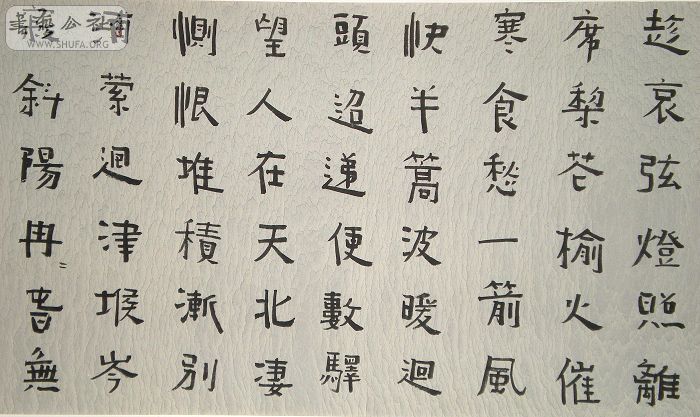 趁哀弦燈照離
席梨花榆火催
寒食愁一箭風
快半篙波暖迴
頭迢遞便數驛
望人在天北凄
惻恨堆積漸別
浦縈迴津堠岑
寂斜陽冉〻春無
書藝公社
WWW.SHUFA.ORG